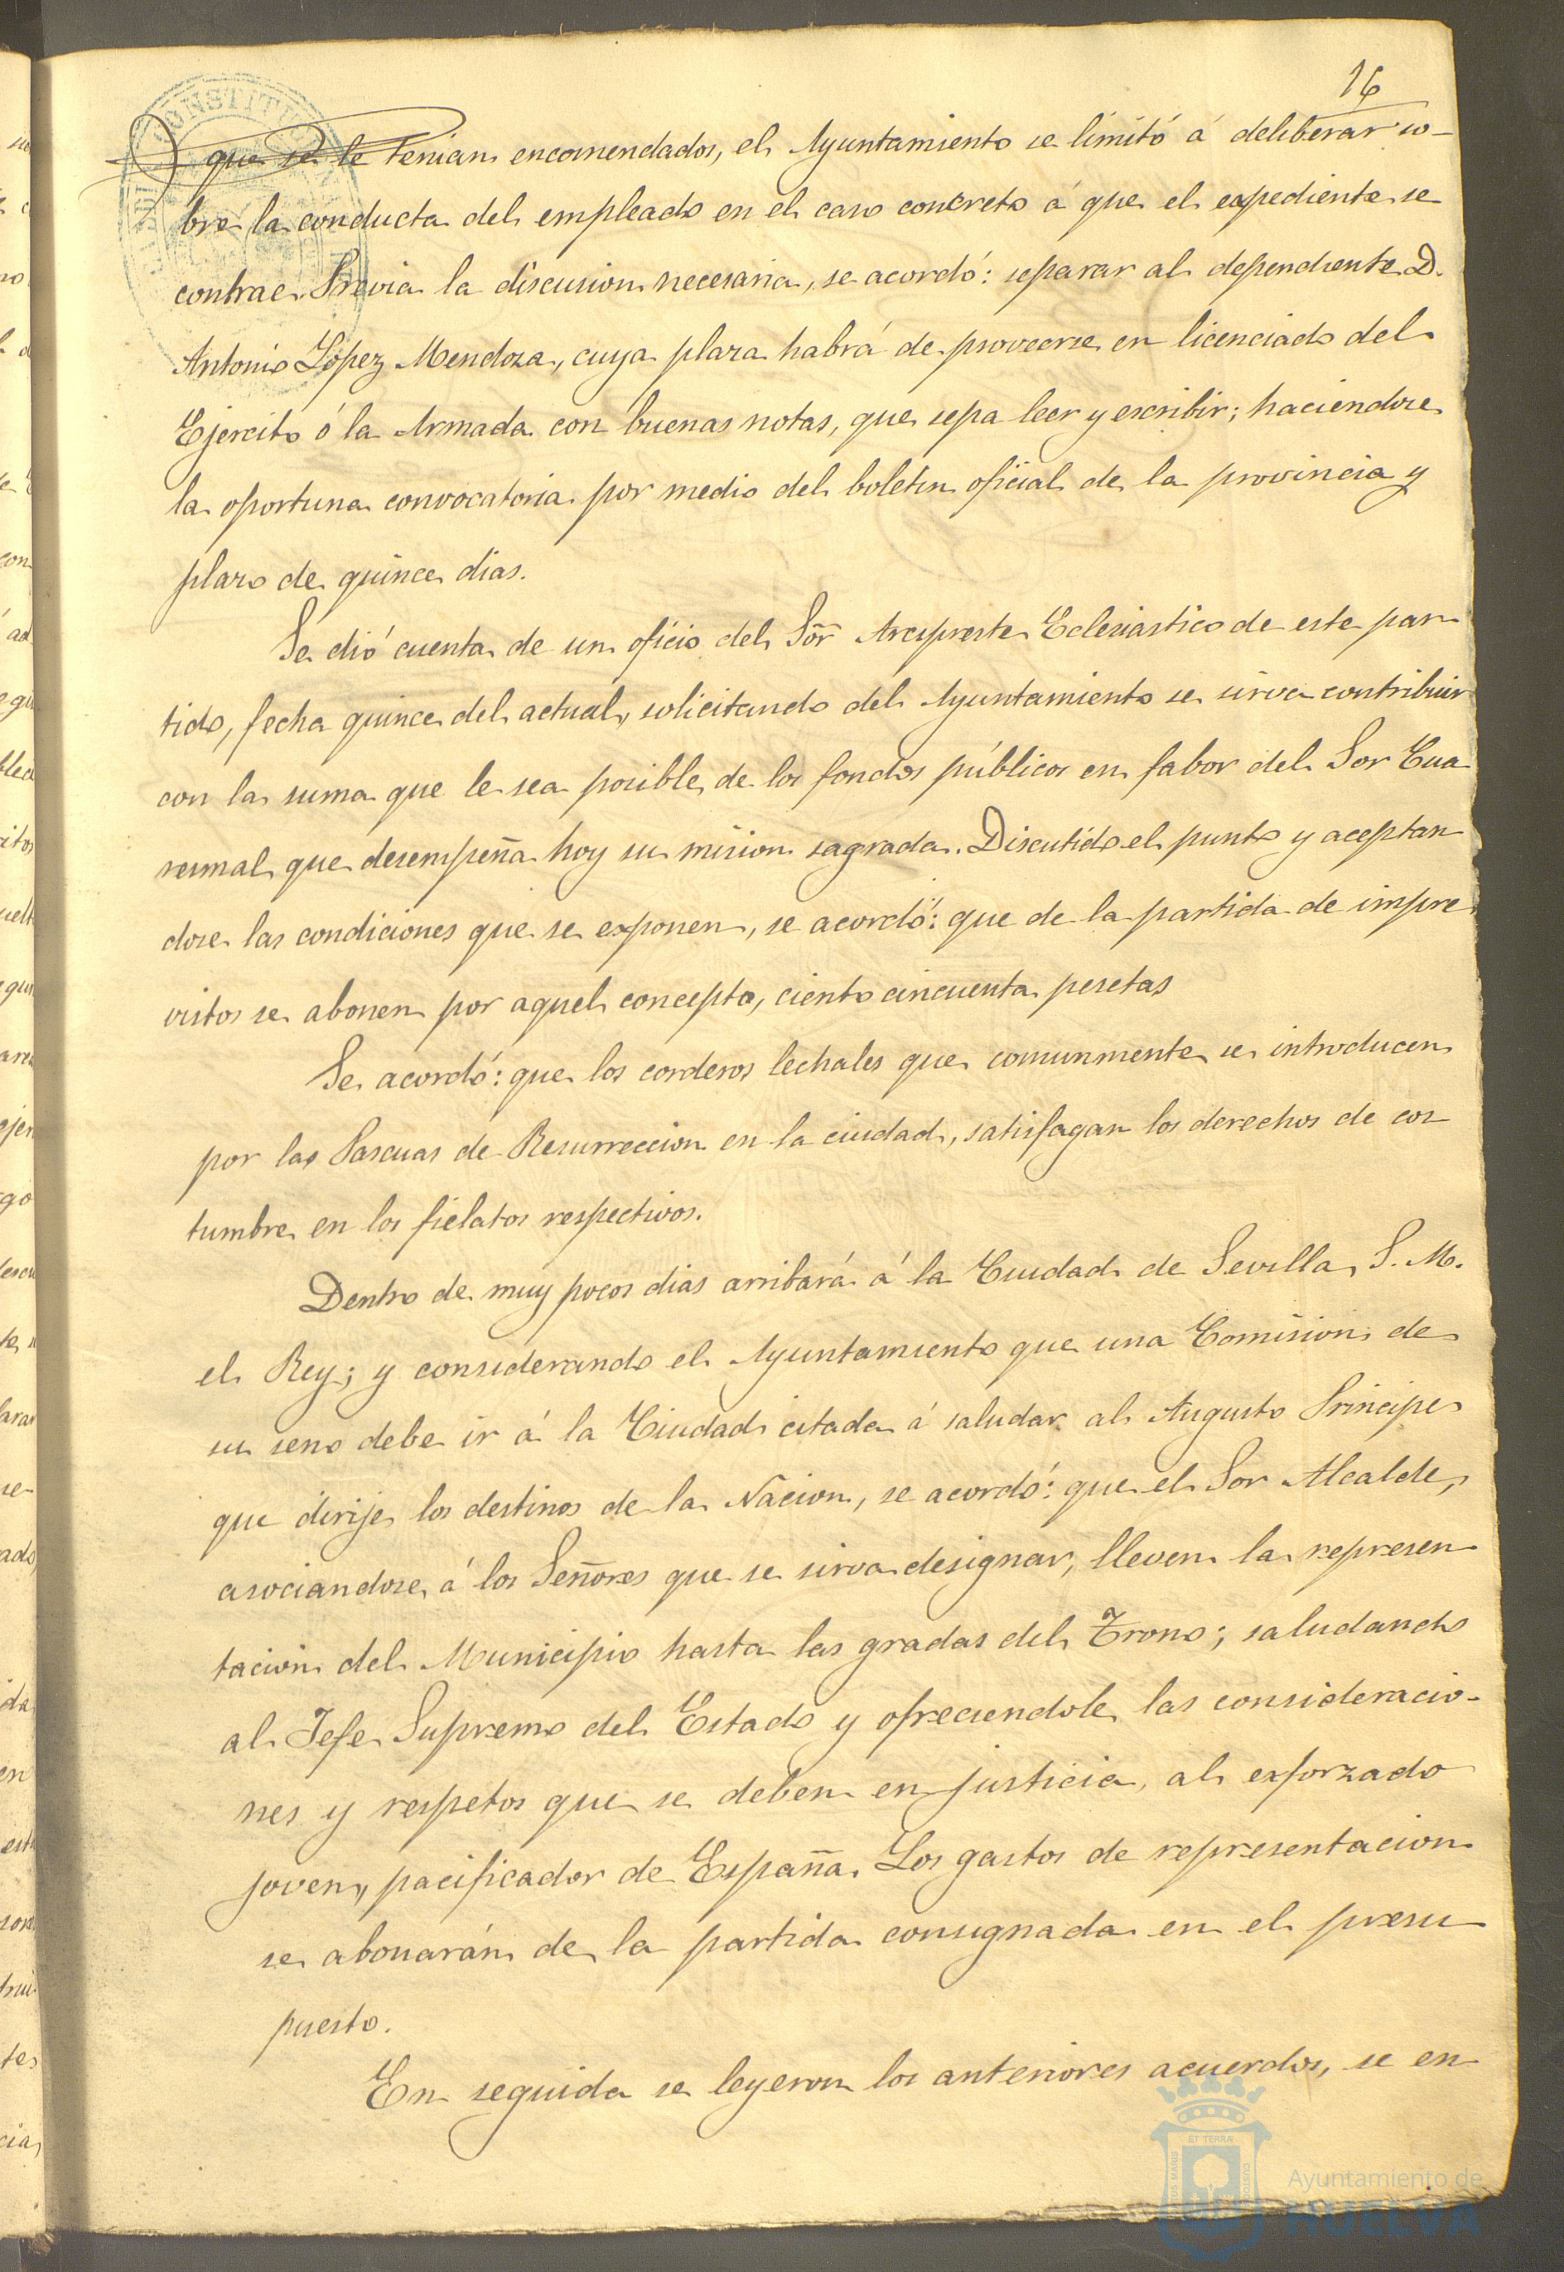 16
que se le tenian encomendados, el Ayuntamiento se limitó á deliberar so-
bre la conducta del empleado en el caso concreto á que el expediente se
contrae. Previa la discusion necesaria, se acordó: separar al dependiente D.
Antonio López Mendoza, cuya plaza habrá de proveerse en licenciado del
Ejército ó la Armada con buenas notas, que sepa leer y escribir; haciendose
la oportuna convocatoria por medio del boletin oficial de la provincia y
plazo de quince dias.
Se dió cuenta de un oficio del Sõr Arcipreste Eclesiastico de este par
tido, fecha quince del actual, solicitando del Ayuntamiento se sirva contribuir
con la suma que le sea posible de los fondos públicos en fabor del Sor Cua
resmal que desempeña hoy su mision sagrada. Discutido el punto y aceptan
dose las condiciones que se exponen, se acordó: que de la partida de impre
vistos se abonen por aquel concepto, ciento cincuenta pesetas
Se acordó: que los corderos lechales que comunmente se introducen
por las Pascuas de Resurreccion en la ciudad, satisfagan los derechos de cos
tumbre en los fielatos respectivos.
Dentro de muy pocos dias arribará á la Ciudad de Sevilla, S. M.
el Rey; y considerando el Ayuntamiento que una Comision de
su seno debe ir á la Ciudad citada á saludar al Augusto Principe
que dirije los destinos de la Nacion, se acordó: que el Sor Alcalde,
asociandose á los Señores que se sirva designar, lleven la represen
tacion del Municipio hasta las gradas del Trono; saludando
al Jefe Supremo del Estado y ofreciendole las consideracio-
nes y respetos que se deben en justicia, al esforzado
joven, pacificador de España. Los gastos de representacion
se abonarán de la partida consignada en el presu
puesto.
En seguida se leyeron los anteriores acuerdos, se en
Ayuntamiento de
HUELVA